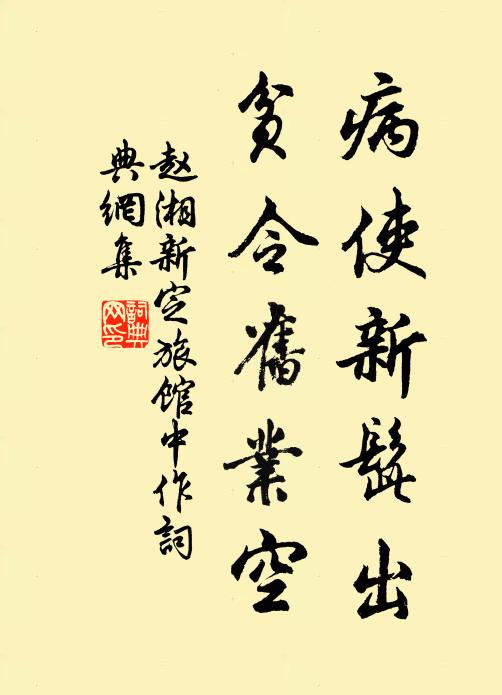 病使新髭出
貧令舊業空
赵湘新定旅館中作詞
典網集
詞典
网印